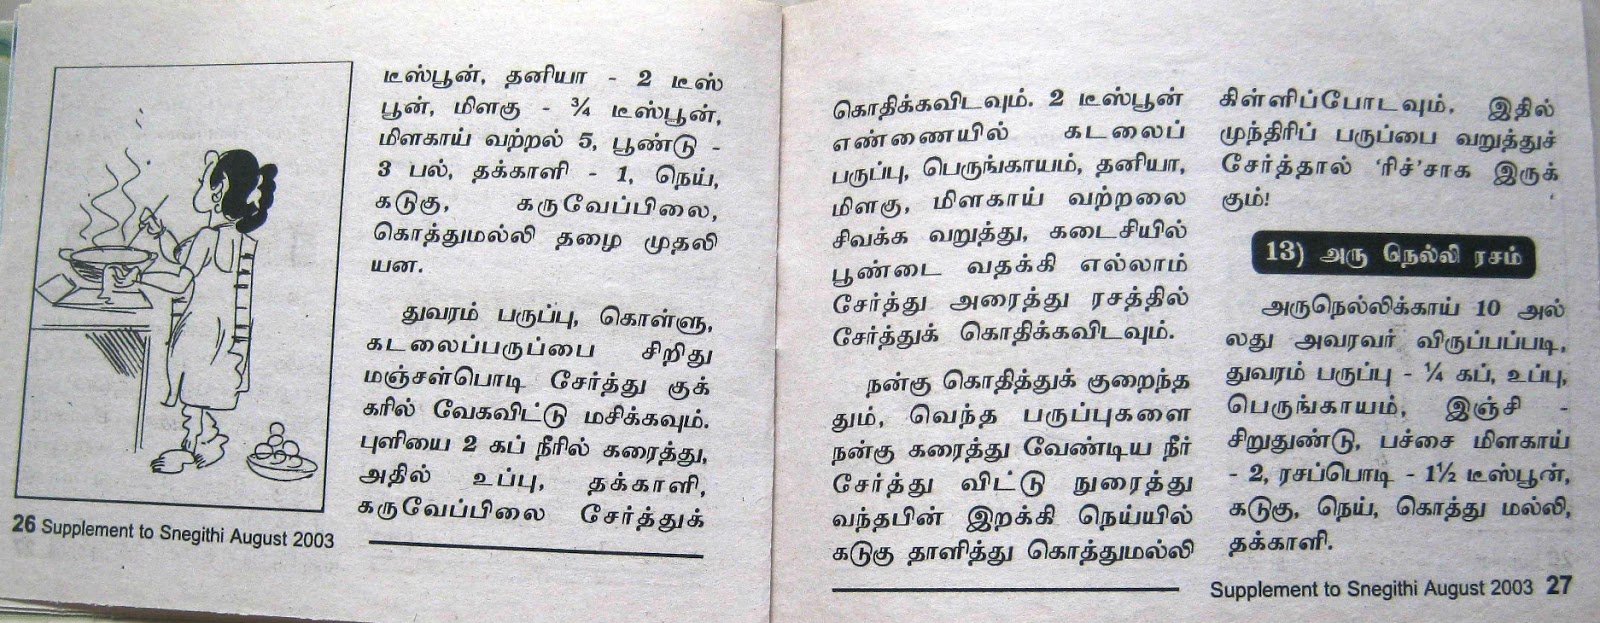 டீஸ்பூன், தனியா - 2 டீஸ்
பூன், மிளகு - ¾ டீஸ்பூன்,
மிளகாய் வற்றல் 5, பூண்டு -
3 பல், தக்காளி - 1, நெய்,
கடுகு, கருவேப்பிலை,
கொத்துமல்லி தழை முதலி
யன.
துவரம் பருப்பு, கொள்ளு,
கடலைப்பருப்பை சிறிது
மஞ்சள்பொடி சேர்த்து குக்
கரில் வேகவிட்டு மசிக்கவும்.
புளியை 2 கப் நீரில் கரைத்து,
அதில் உப்பு, தக்காளி,
கருவேப்பிலை சேர்த்துக்
26 Supplement to Snegithi August 2003
கொதிக்கவிடவும். 2 டீஸ்பூன்
எண்ணையில் கடலைப்
பருப்பு, பெருங்காயம், தனியா,
மிளகு, மிளகாய் வற்றலை
சிவக்க வறுத்து, கடைசியில்
பூண்டை வதக்கி எல்லாம்
சேர்த்து அரைத்து ரசத்தில்
சேர்த்துக் கொதிக்கவிடவும்.
நன்கு கொதித்துக் குறைந்த
தும், வெந்த பருப்புகளை
நன்கு கரைத்து வேண்டிய நீர்
சேர்த்து விட்டு நுரைத்து
வந்தபின் இறக்கி நெய்யில்
கடுகு தாளித்து கொத்துமல்லி
கிள்ளிப்போடவும். இதில்
முந்திரிப் பருப்பை வறுத்துச்
சேர்த்தால் ‘ரிச்’சாக இருக்
கும்!
13) அரு நெல்லி ரசம்
அருநெல்லிக்காய் 10 அல்
லது அவரவர் விருப்பப்படி,
துவரம் பருப்பு - ¼ கப், உப்பு,
பெருங்காயம், இஞ்சி -
சிறுதுண்டு, பச்சை மிளகாய்
- 2, ரசப்பொடி - 1½ டீஸ்பூன்,
கடுகு, நெய், கொத்து மல்லி,
தக்காளி.
Supplement to Snegithi August 2003 27